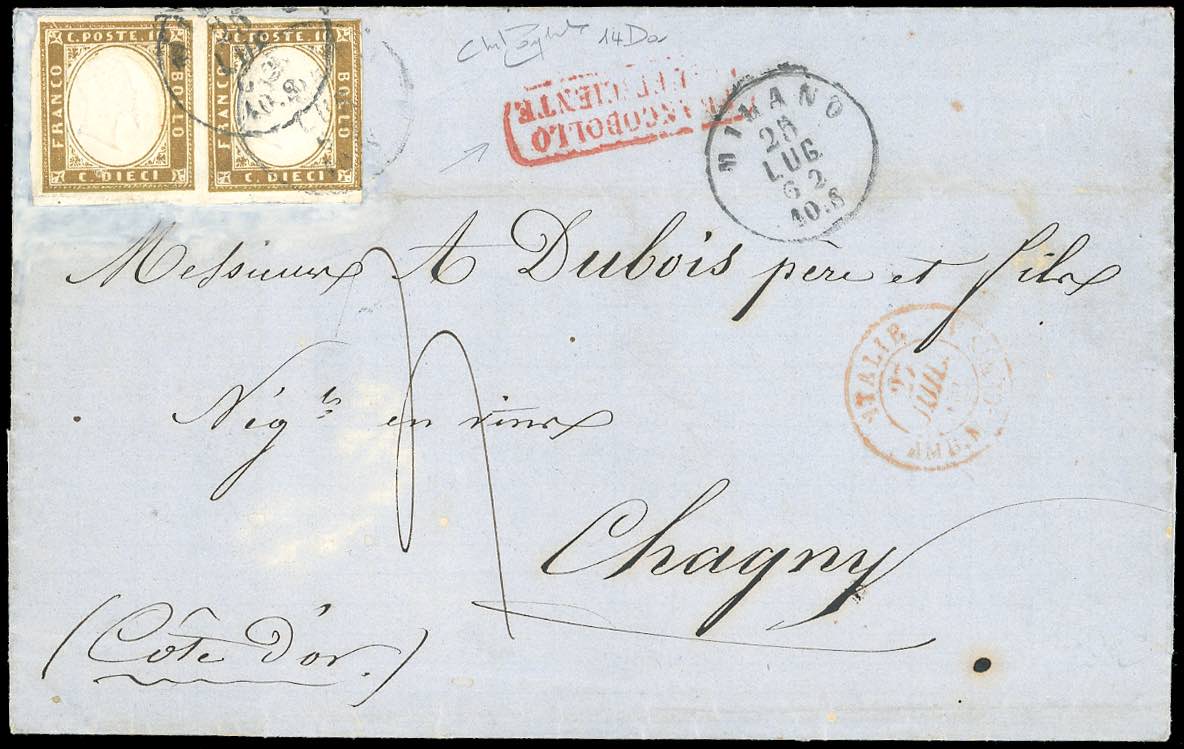 C. POSTE. 10
FRANCO
BOLLO
C. DIECI
C. POSTE. 10
FRANCO
BOLLO
C. DIECI
LUG
10.S
14Dor
FRANCOBOLLO
INSUFFICIENTE
MILANO
26
LUG
62
10.S
Messieurs A Dubois père et fils
Nég.ts en vins
Chagny
(Côte d'or.)
ITALIE
27
JUIL.
AMB.